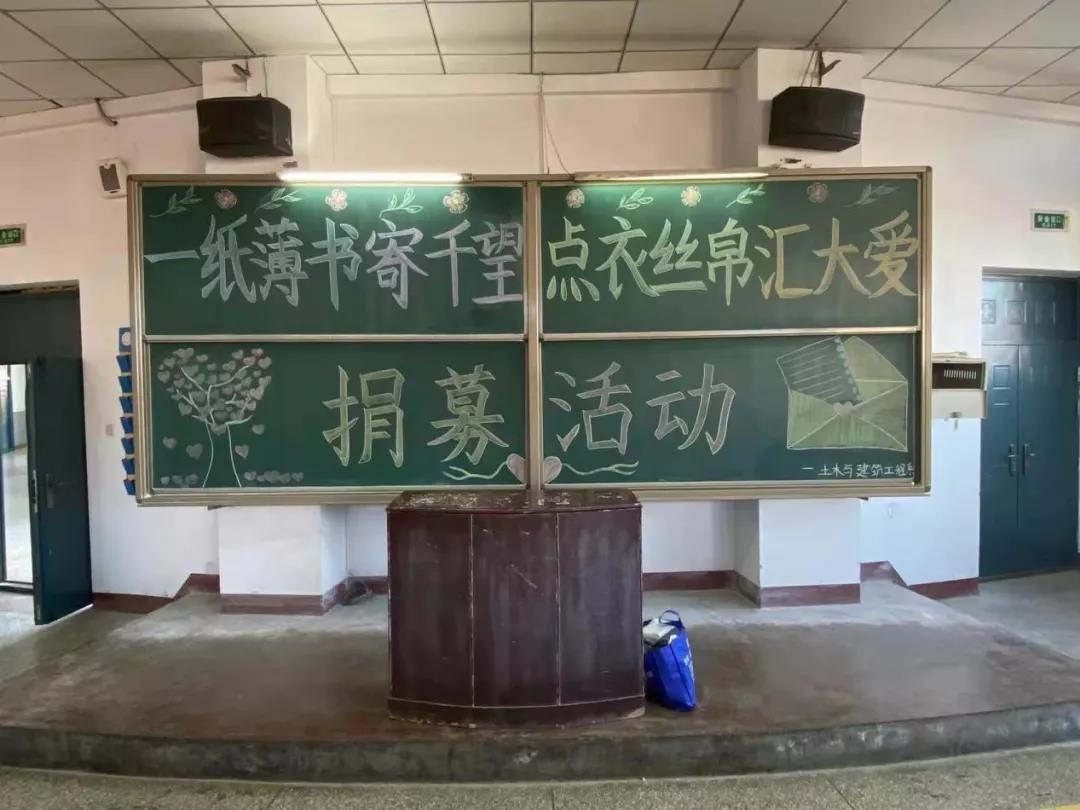 一纸薄书寄千望 点衣丝帛汇大爱
捐募活动
一土木与建筑工程系